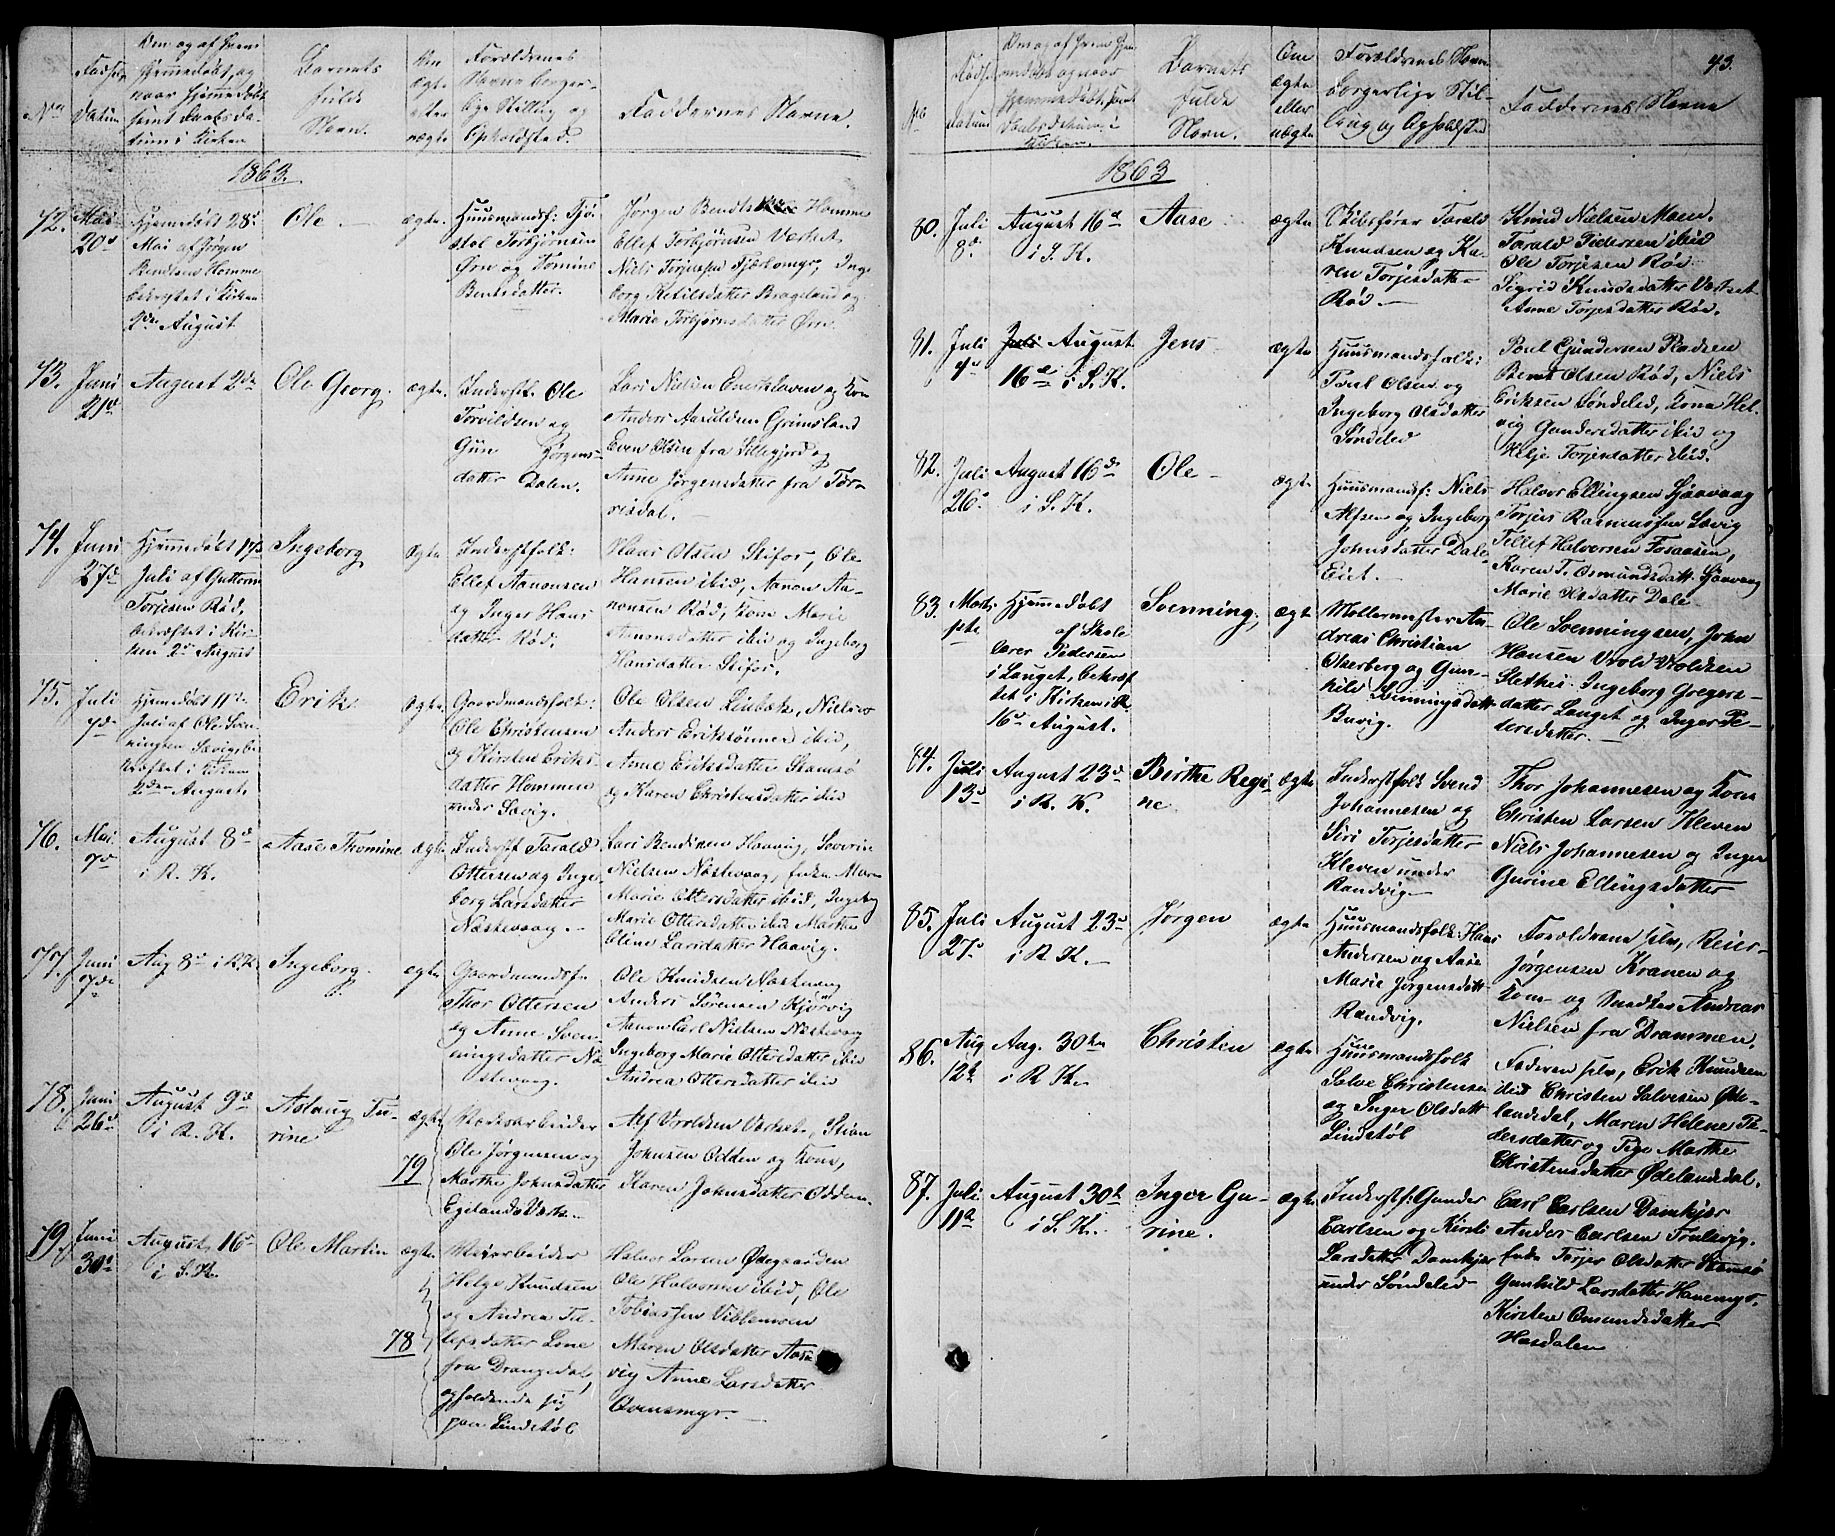 1863.
72. Mai 20d
Hjemmedøbt 28d
Mai af Jørgen
Bendtsen Homme
bekræftet i Kirken
2den August
Ole
ægte
Huusmandsf: Tjø-
stol Torbjørnsen
Ørn og Tomine
Bentsdatter.
Jørgen Bendts Homme
Ellef Torbjørnsen Værket
Niels Torjusen Fjærkomyr, Inge
borg Ketilsdatter Brageland og
Marie Torbjørnsdatter Ørn.
73. Juni 21d
August 2den
Ole Georg.
ægte.
Inderst. Ole
Torvildsen og
Gun Jørgens-
datter Dalen.
Lars Nielsen og Kone
Anders Grimsland
Even Olsen fra og
Anne Jørgensdatter fra Tør-
risdal.
74. Juni 27d
Hjemmedøbt
Juli af Guttorm
Torjesen Rød,
bekræftet i Kir-
ken 2d August
Ingeborg
ægte
Inderstfolk:
Ellef Aanonsen
og Inger Hans
datter Rød.
Hans Olsen Stifos, Ole
Hansen ibid, Aanon Aa-
nonsen Rød, Kone Marie
Aanonsdatter ibid og Ingeborg
Hansdatter Stifos.
75. Juli
Hjemmedøbt 11d
Juli af Ole Sven-
ningsen Sævig, be-
kræftet i Kirken
2den August
Erik
ægte
Gaardmandsfolk:
Ole Christensen
og Kirsten Eriks-
datter Hommen
under Sævig.
Ole Olsen Lindbæk, Niels og
Anders Erikssønner ibid,
Anne Eriksdatter Stamsø
og Karen Christensdatter ibid
76. Mai
August 8d
i R. K.
Aase Thomine
ægte
Inderst Tarald
Ottersen og Inge-
borg Larsdatter
Næstevaag.
Lars Bendixen Haavig, Severin
Nielsen Næstevaag, Enke Maren
Marie Ottersdatter ibid, Ingeborg
Marie Ottersdatter ibid Marthe
Eline Larsdatter Haavig.
77. Juni 7de
Aug 8d i R.K
Ingeborg.
ægte
Gaardmandsf
Thor Ottersen
og Anne Sven-
ningsdatter Næ-
stevaag.
Ole Knudsen Næstevaag
Anders Sørensen Kjørvig
Aanon Carl Nielsen Næstevaag
Ingeborg Marie Ottersdatter ibid
Andrea Ottersdatter ibid
78. Juni 26d
August 9d
i R. K.
Aslaug To-
rine
ægte
79
Ole Jørgensen og
Marthe Johnsdatter
Egelands Værk.
Alf Vroldsen Værket, Stian
Johnsen Odden og Kone,
Karen Johnsdatter Odden
79. Juni 30d
August 16d
i S.K.
Ole Martin
ægte
78
Veiarbeider
Helge Knudsen
og Andrea Tel-
lefsdatter Lone
fra Drangedal,
opholdende sig
paa Lindstøl
Halvor Larsen Ødegaarden
Ole Halvorsen ibid, Ole
Tobiassen Viblemoen
Maren Olsdatter Aase
vig Anne Larsdatter
Qvensmyr.
43.
1863
80. Juli 8d
August 16d
i S. K.
Aase
ægte
Skibsfører Tarald
Knudsen og Ka-
ren Torjesdatter
Rød
Knud Nielsen Moen.
Tarald Pedersen ibid
Ole Torjesen Rød
Sigrid Knudsdatter Værket
Anne Torjesdatter Rød.
81. Juli
Juli August
16de i S. K.
Jens
ægte
Huusmandsfolk:
Poul Olsen og
Ingeborg Olsdatter
Søndeled
Poul Gundersen Pladsen
Berent Olsen Rød, Niels
Eriksen Søndeled, Kone Hel-
vig Gundersdatter ibid og
Helje Torjesdatter ibid.
82. Juli 26d
August 16de
i S. K.
Ole
ægte
Huusmandsf: Niels
Alfsen og Ingeborg
Johnsdatter Dale
Eiet.
Halvor Ellingsen Sjøavaag
Torjus Rasmussen Sævig
Tellef Halvorsen Fosaasen,
Karen T. Osmundsdatt. Sjøavaag
Marie Olsdatter Dale
83. Marts
Hjemmedøbt
af Skole
lærer Pedersen
i Langet, bekræf
tet i Kirken i R.
16d August.
Svenning,
ægte
Møllermester An-
dreas Christian
Olserberg og Gun-
hild Svenningsdatt
Buvig.
Ole Svenningsen, John
Hansen Vrold Vroldsen
Slethei. Ingeborg Gregers-
datter Langet og Inger Pe-
dersdatter.
84. Juli 13d
August 23d
i R. K.
Birthe Regi-
ne.
ægte
Inderstfolk Svend
Johannesen og
Siri Torjesdatter
Kleven under
Randvig
Thor Johannesen og Kone
Christen Larsen Kleven
Niels Johannesen og Inger
Gurine Ellingsdatter
85. Juli 27d
August 23d
i R. K.
Jørgen
ægte
Huusmandsfolk: Hans
Andersen og Aase
Marie Jørgensdatt
Randvig.
Forældrene selv, Reier
Jørgensen Kranen og
Kone og Snedker Andreas
Nielsen fra Drammen.
86. Aug 12te
Aug. 30te
i R. K.
Christen
ægte
Huusmandsfolk
Salve Christensen
og Inger Olsdatt
Lindstøl
Faderen selv, Erik Knudsen
ibid Christen Salvesen Øde-
landsdal, Maren Helene Pe-
dersdatter og Pige Marthe
Christensdatter Ødelandsdal.
87. Juli 11te
August 30te
i S. K.
Inger Gu-
rine.
ægte
Inderstf: Gunder
Carlsen og Kirsti
Larsdatter Damkjær
under Søndeled
Carl Carlsen Damkjær
Anders Carlsen Trulsvig.
Enke Torjer Olsdatter Stamsø
Gunhild Larsdatter Hanemyr.
Kirsten Omundsdatter
Hasdalen